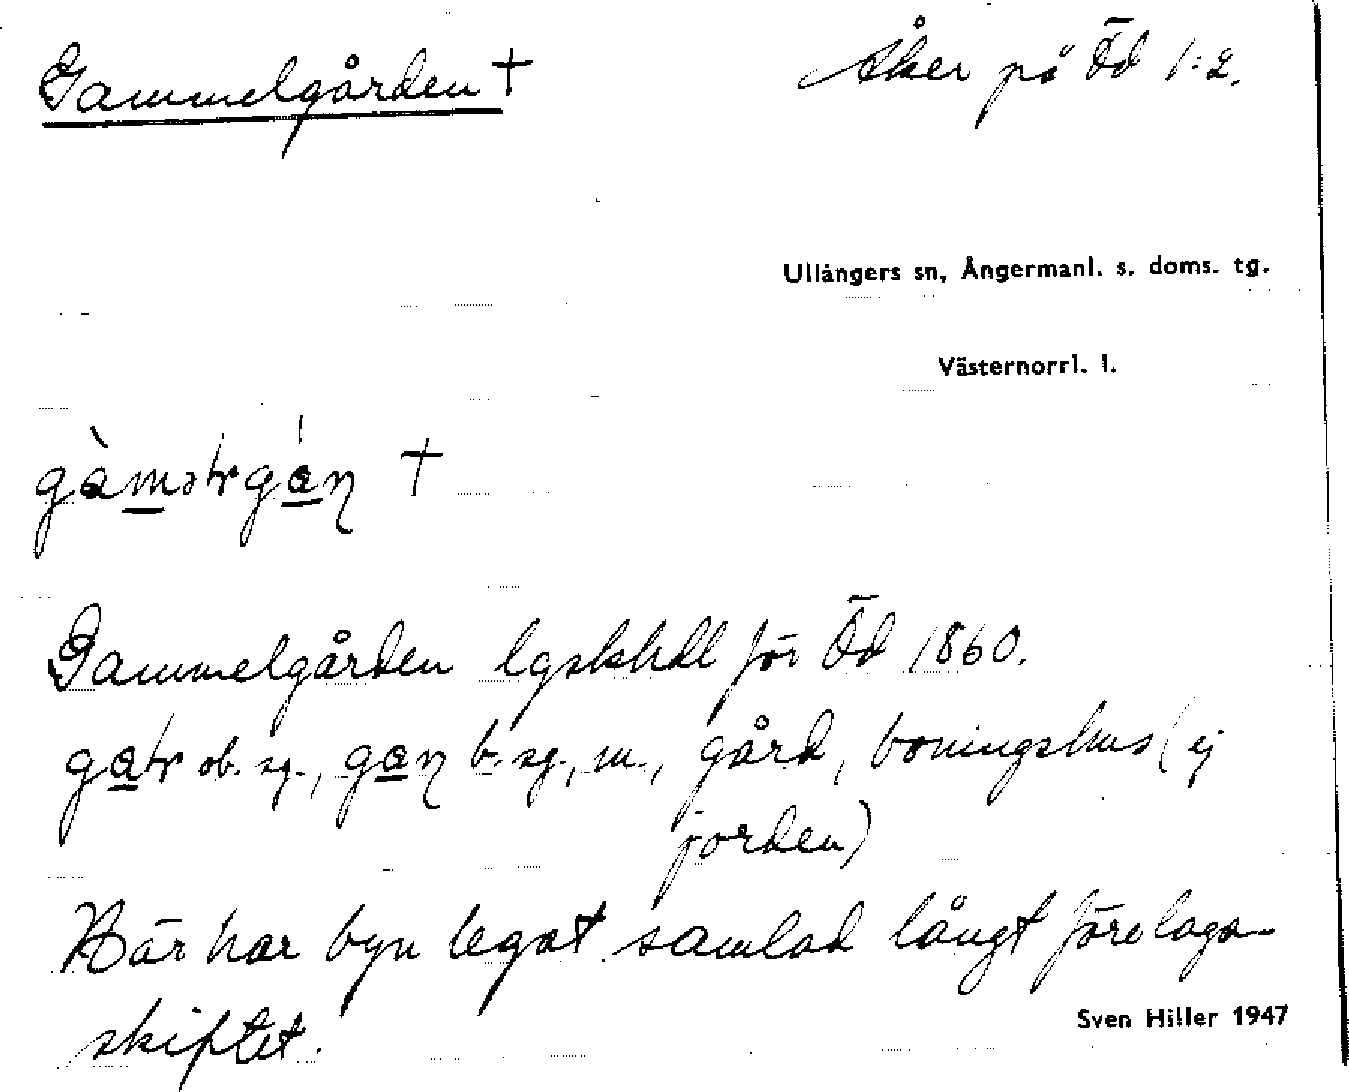 Gammelgården †
Åker på Öd 1:2.
Ullångers sn, Ångermanl. s. doms. tg.
Västernorrl. l.
†
Gammelgården lgskhdl för Öd 1860.
ob. sg., b. sg., m., gård, boningshus (ej
jorden)
Här har byn legat samlad långt före laga
skiftet.
Sven Hiller 1947